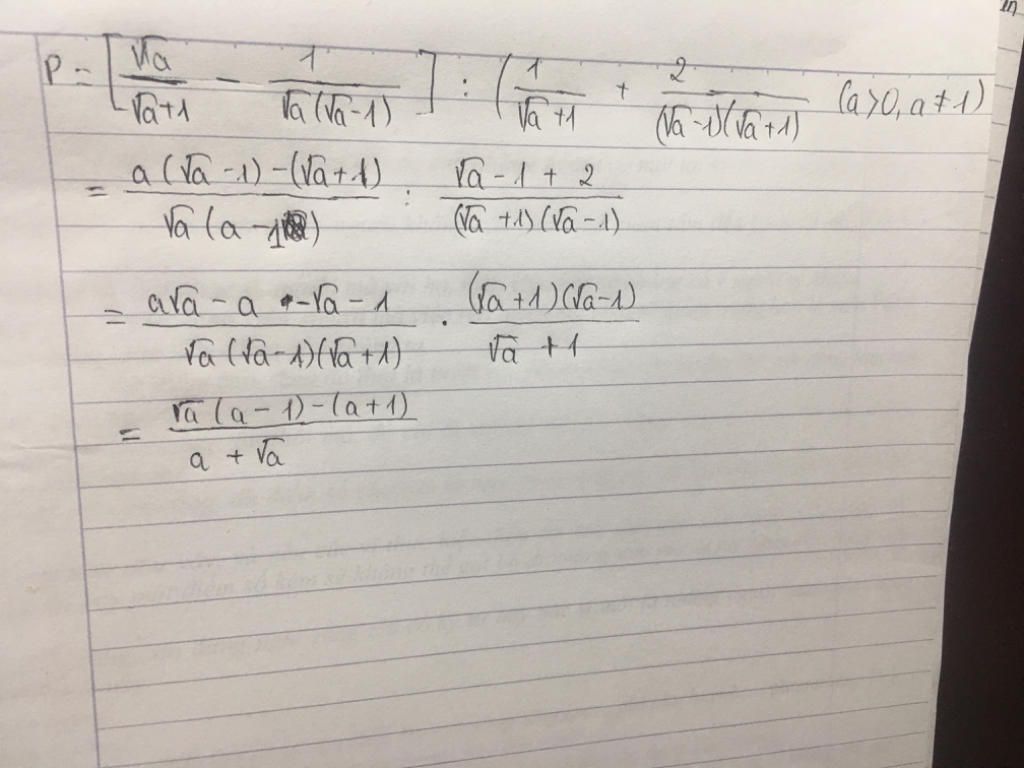 P = [ √a / (√a+1) − 1 / (√a(√a−1)) ] : ( 1 / (√a+1) + 2 / ((√a−1)(√a+1)) (a>0, a≠1)
= (a(√a−1)−(√a+1)) / (√a(a−1)) : (√a−1+2) / ((√a+1)(√a−1))
= (a√a − a − √a − 1) / (√a(√a−1)(√a+1)) · ((√a+1)(√a−1)) / (√a+1)
= (√a(a−1)−(a+1)) / (a+√a)